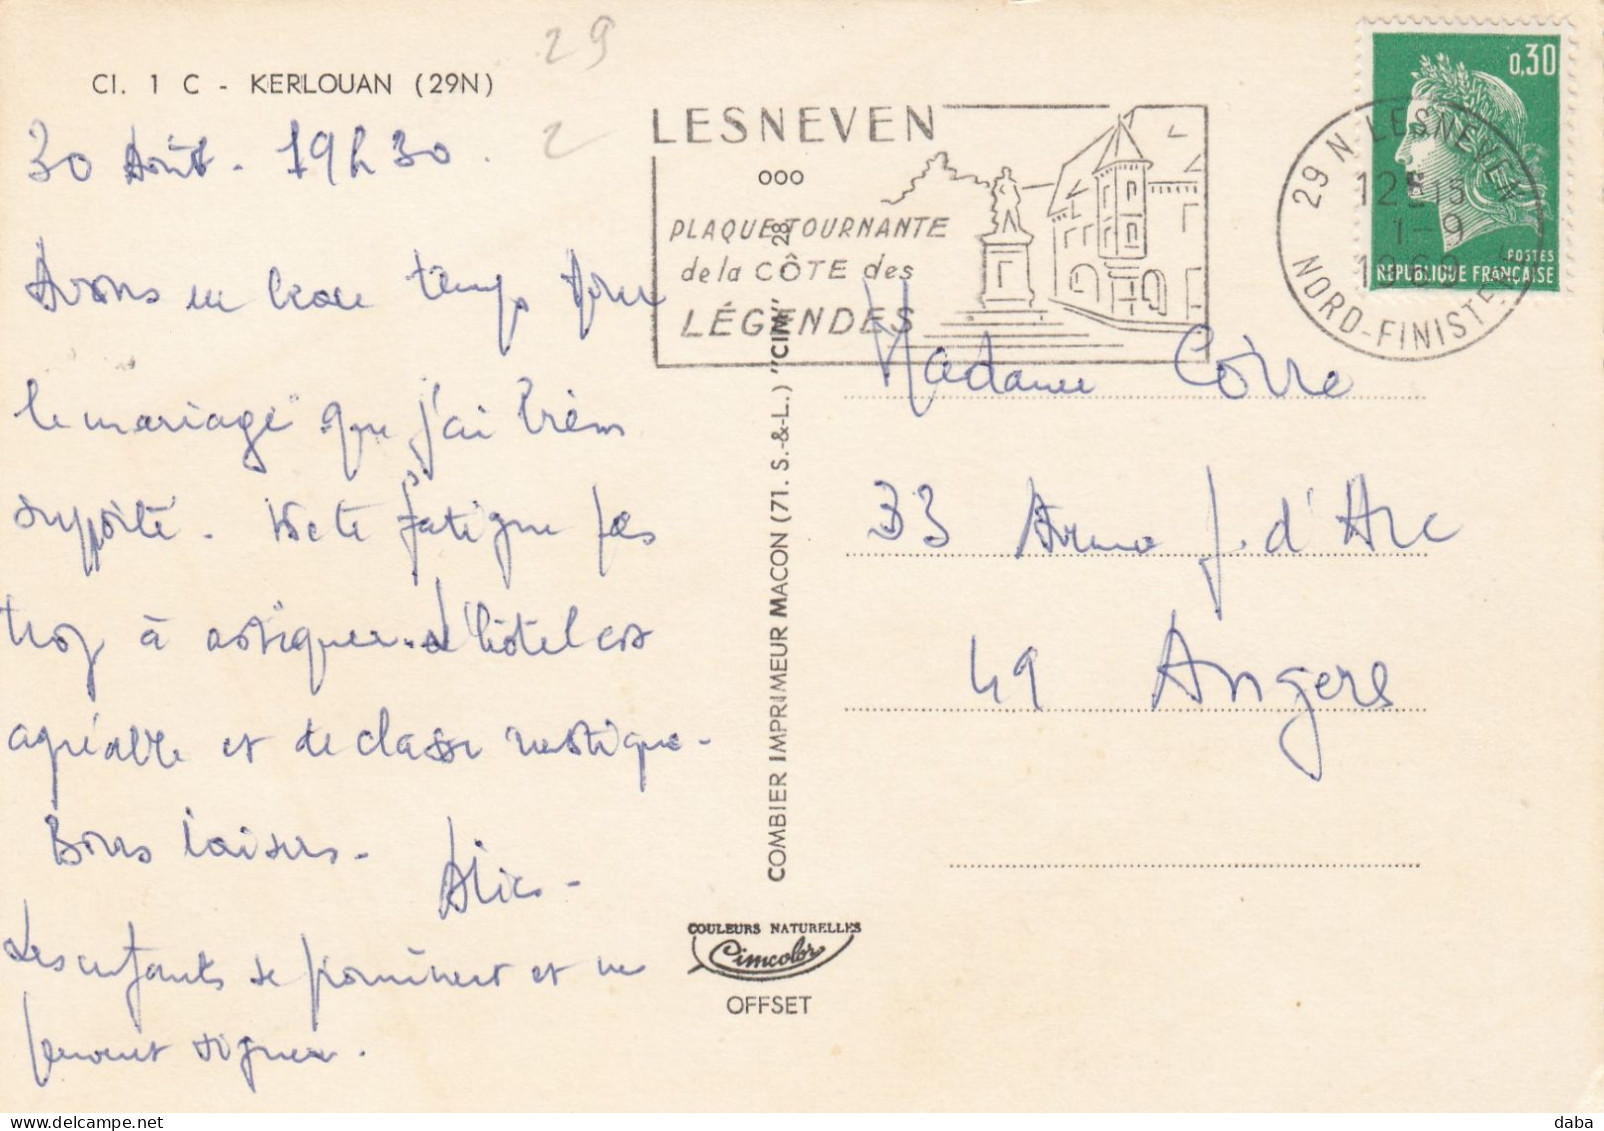 29
2
Cl. 1 C - KERLOUAN (29N)
30 Août - 19h30.
Avons eu beau temps pour
le mariage que j'ai très bien
supporté. Ne te fatigue pas
trop à astiquer. L'hôtel est
agréable et de classe rustique.
Bons baisers.
Alice -
Les enfants se promènent et ne
peuvent signer.
LESNEVEN
ooo
PLAQUE TOURNANTE
de la CÔTE des
LÉGENDES
0,30
POSTES
REPUBLIQUE FRANÇAISE
29 N LESNEVEN
12H15
1-9
1969
NORD-FINISTERE
Madame Corre
33 Avenue J. d'Arc
49 Angers
COMBIER IMPRIMEUR MACON (71. S.-&-L.) "CIM" 28
COULEURS NATURELLES
Cimcolor
OFFSET
daba
www.delcampe.net